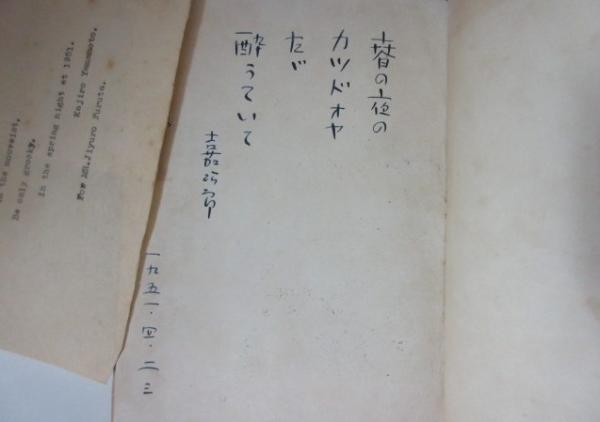 春の夜の
カツドオヤ
たゞ
酔うていて
嘉次郎
一九五一・四・二三
the mouvaist.
He only grooky.
In the spring night at 1951.
Kajiro Yamamoto.
For MR.Jiyuro Furuta.